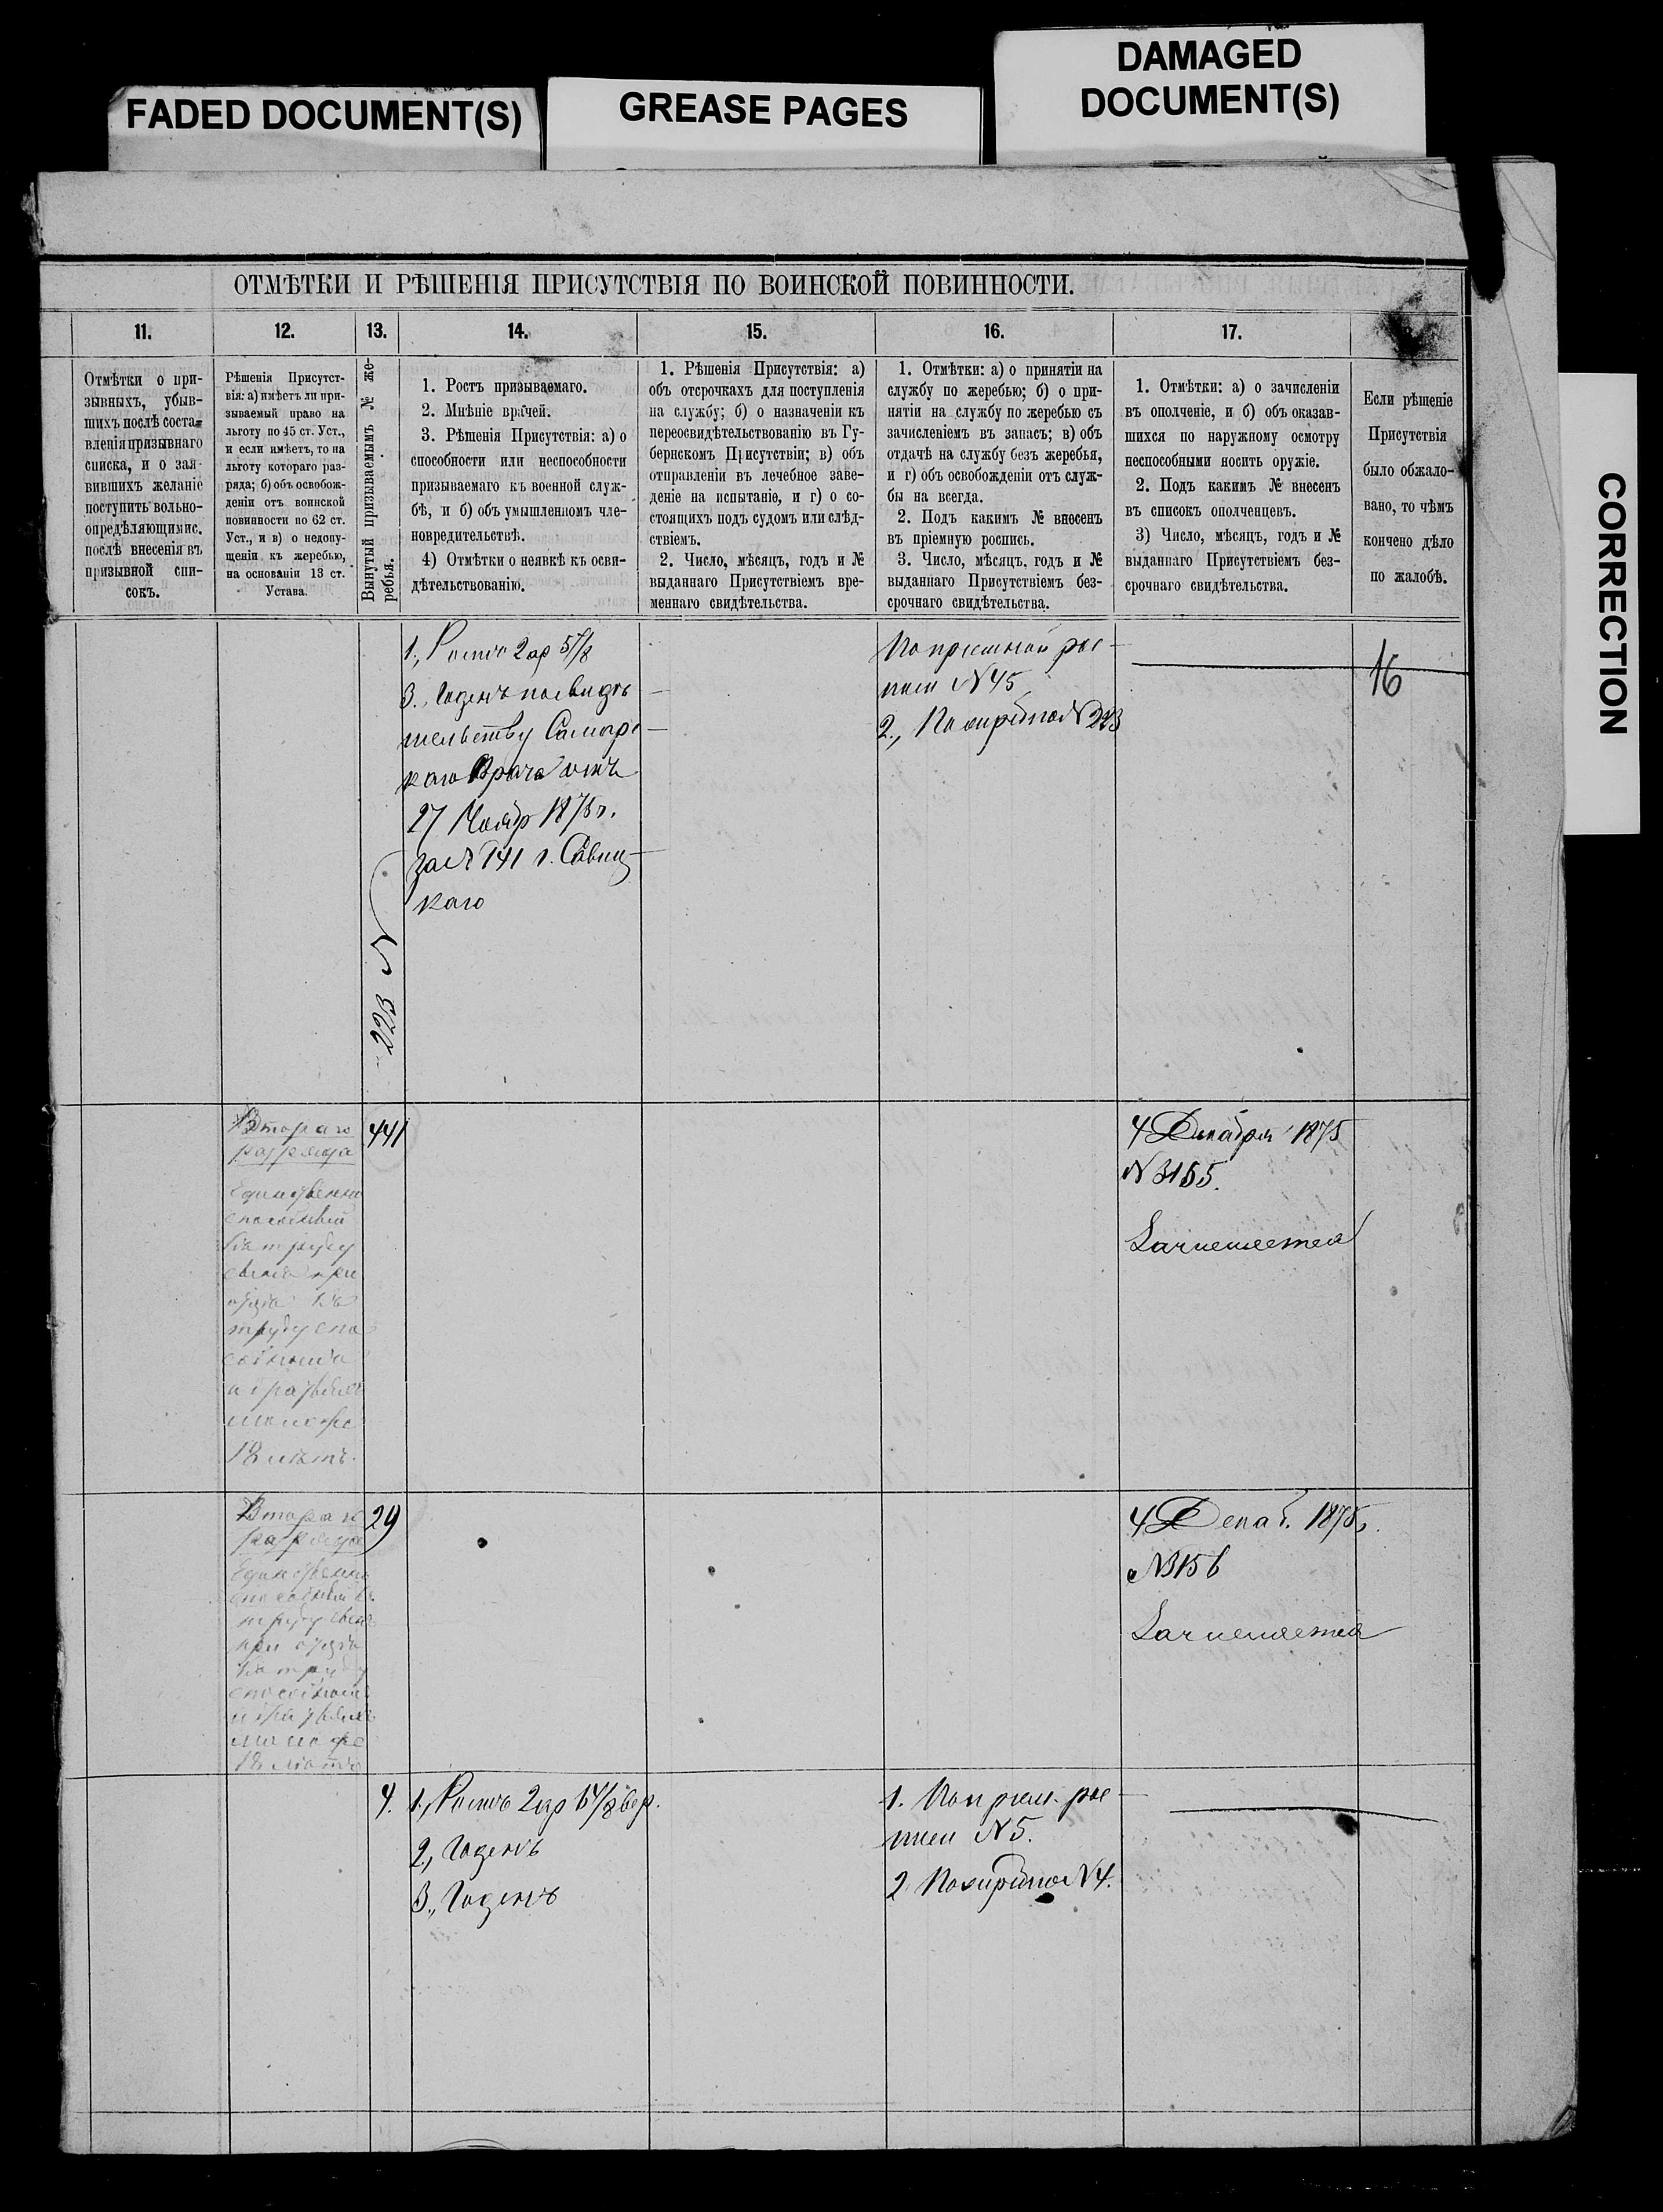 FADED DOCUMENT(S)
GREASE PAGES
DAMAGED
DOCUMENT(S)
CORRECTION
ОТМѢТКИ И РѢШЕНІЯ ПРИСУТСТВІЯ ПО ВОИНСКОЙ ПОВИННОСТИ.
11.
12.
13.
14.
15.
16.
17.
Отмѣтки о при-
зывныхъ, убыв-
шихъ послѣ соста-
вленія призывнаго
списка, и о зая-
вившихъ желаніе
поступить вольно-
опредѣляющимис.
послѣ внесенія въ
призывной спи-
сокъ.
Рѣшенія Присутст-
вія: а) имѣетъ ли при-
зываемый право на
льготу по 45 ст. Уст.,
и если имѣетъ, то на
льготу котораго раз-
ряда; б) объ освобож-
деніи отъ воинской
повинности по 62 ст.
Уст., и в) о недопу-
щеніи къ жеребью,
на основаніи 13 ст.
Устава.
Вынутый призываемымъ № же-
ребья.
1. Ростъ призываемаго.
2. Мнѣніе врачей.
3. Рѣшенія Присутствія: а) о
способности или неспособности
призываемаго къ военной служ-
бѣ, и б) объ умышленномъ чле-
новредительствѣ.
4) Отмѣтки о неявкѣ къ осви-
дѣтельствованію.
1. Рѣшенія Присутствія: а)
объ отсрочкахъ для поступленія
на службу; б) о назначеніи къ
переосвидѣтельствованію въ Гу-
бернскомъ Присутствіи; в) объ
отправленіи въ лечебное заве-
деніе на испытаніе, и г) о со-
стоящихъ подъ судомъ или слѣд-
ствіемъ.
2. Число, мѣсяцъ, годъ и №
выданнаго Присутствіемъ вре-
меннаго свидѣтельства.
1. Отмѣтки: а) о принятіи на
службу по жеребью; б) о при-
нятіи на службу по жеребью съ
зачисленіемъ въ запасъ; в) объ
отдачѣ на службу безъ жеребья,
и г) объ освобожденіи отъ служ-
бы на всегда.
2. Подъ какимъ № внесенъ
въ пріемную роспись.
3. Число, мѣсяцъ, годъ и №
выданнаго Присутствіемъ без-
срочнаго свидѣтельства.
1. Отмѣтки: а) о зачисленіи
въ ополченіе, и б) объ оказав-
шихся по наружному осмотру
неспособными носить оружіе.
2. Подъ какимъ № внесенъ
въ списокъ ополченцевъ.
3) Число, мѣсяцъ, годъ и №
выданнаго Присутствіемъ без-
срочнаго свидѣтельства.
Если рѣшеніе
Присутствія
было обжало-
вано, то чѣмъ
кончено дѣло
по жалобѣ.
223 N
1., Ростъ 2 ар 5 7/8
3., Годенъ по свидѣ
тельству Самар-
каго Врача отъ
27 Ноябр 1875 г.
за № 141 г. Савиц-
каго
По пріемной рос-
писи N 45
2., По жеребью N 223
16
Втораго
разряда
Единственно
способный
къ труду
сынъ при
отцѣ къ
труду спо
собномъ
и братьяхъ
моложе
18 лѣтъ.
441
4 Декабря 1875
N 3155.
Зачисляется
Втораго
разряда
Единственно
способный къ
труду сынъ
при отцѣ
къ труду
способномъ
и братьяхъ
моложе
18 лѣтъ
29
4 Декаб. 1875 г.
N 3156
Зачисляется
4.
1., Ростъ 2 ар 6 4/8 вер.
2., Годенъ
3., Годенъ
1. По пріем. рос-
писи N 5.
2 По жеребью N 4.